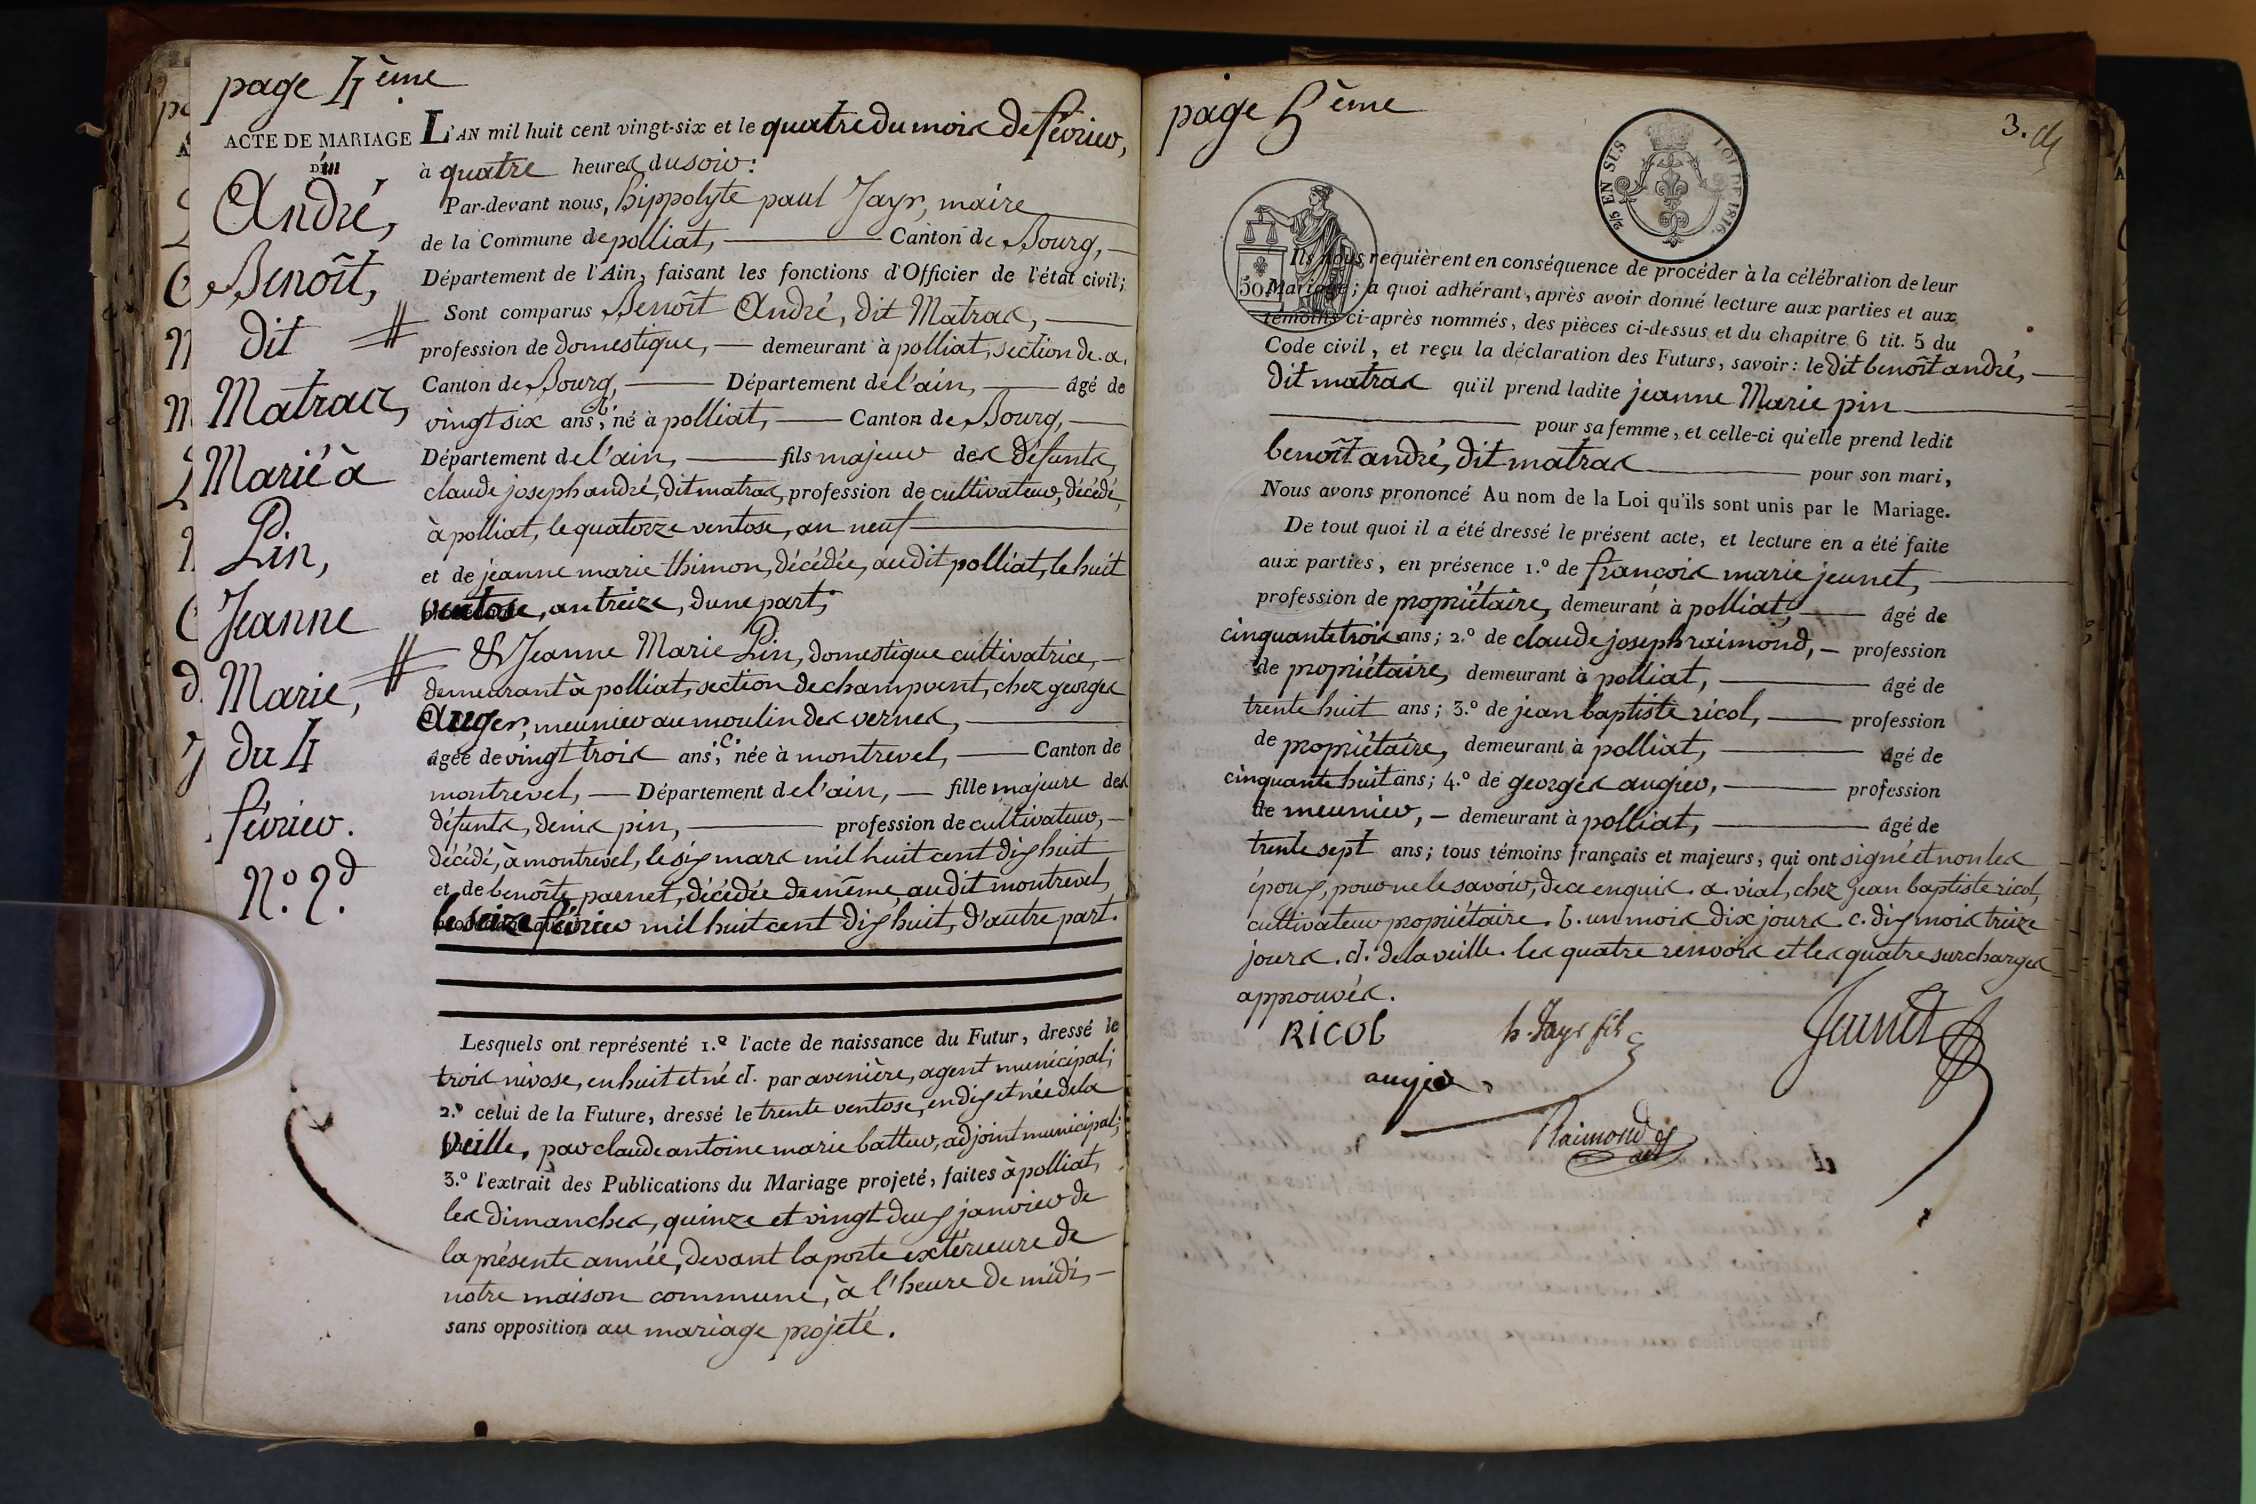 page 4ème
ACTE DE MARIAGE
André,
Benoît,
dit
Matras,
Marié à
Pin,
Jeanne
Marie,
du 4
février.
N.° 2.d
L'AN mil huit cent vingt-six et le quatre du mois de février,
à quatre heures du soir :
Par-devant nous, hippolyte paul Jayr, maire
de la Commune de polliat, Canton de Bourg,
Département de l'Ain, faisant les fonctions d'Officier de l'état civil ;
Sont comparus Benoît André, dit Matras,
profession de domestique, demeurant à polliat, section de .a.
Canton de Bourg, Département de l'ain, âgé de
vingt six ans b. né à polliat, Canton de Bourg,
Département de l'ain, fils majeur des défunts,
claude joseph andré, dit matras, profession de cultivateur, décédé,
à polliat, le quatorze ventose, an neuf
et de jeanne marie thimon, décédée, audit polliat, le huit
ventose, an treize, d'une part ;
& Jeanne Marie Pin, domestique cultivatrice,
demeurant à polliat, section de champvent, chez georges
Auger, meunier au moulin des vernes,
âgée de vingt trois ans, c. née à montrevel, Canton de
montrevel, Département de l'ain, fille majeure des
défunts, denis pin, profession de cultivateur,
décédé, à montrevel, le six mars mil huit cent dix huit
et de benoîte parnet, décédée de même, audit montrevel,
le seize février mil huit cent dix huit, d'autre part.
Lesquels ont représenté 1.° l'acte de naissance du Futur, dressé le
trois nivose, en huit et né d. par avenière, agent municipal ;
2.° celui de la Future, dressé le trente ventose, en dix et née de la
Veille, par claude antoine marie battur, adjoint municipal ;
3.° l'extrait des Publications du Mariage projeté, faites à polliat,
les dimanches, quinze et vingt deux janvier de
la présente année, devant la porte extérieure de
notre maison commune, à l'heure de midi,
sans opposition au mariage projeté.
page 5ème
3.
2/5 EN SUS
LOI DE 1816.
50
Ils nous requièrent en conséquence de procéder à la célébration de leur
Mariage ; a quoi adhérant, après avoir donné lecture aux parties et aux
témoins ci-après nommés, des pièces ci-dessus et du chapitre 6 tit. 5 du
Code civil, et reçu la déclaration des Futurs, savoir : le dit benoît andré,
dit matras qu'il prend ladite jeanne Marie pin
pour sa femme, et celle-ci qu'elle prend ledit
benoît andré, dit matras pour son mari,
Nous avons prononcé Au nom de la Loi qu'ils sont unis par le Mariage.
De tout quoi il a été dressé le présent acte, et lecture en a été faite
aux parties, en présence 1.° de françois marie jeunet,
profession de propriétaire, demeurant à polliat, âgé de
cinquante trois ans ; 2.° de claude joseph raimond, profession
de propriétaire, demeurant à polliat, âgé de
trente huit ans ; 3.° de jean baptiste ricol, profession
de propriétaire, demeurant à polliat, âgé de
cinquante huit ans ; 4.° de georges augier, profession
de meunier, demeurant à polliat, âgé de
trente sept ans ; tous témoins français et majeurs, qui ont signé et non les
époux, pour ne le savoir, de ce enquis. a. vial, chez Jean baptiste ricol,
cultivateur propriétaire. b. un mois dix jours. c. dix mois treize
jours. d. de la veille. les quatre renvois et les quatre surcharges
approuvés.
RICOL h. Jayr fils Jeunet
augier
Raimond